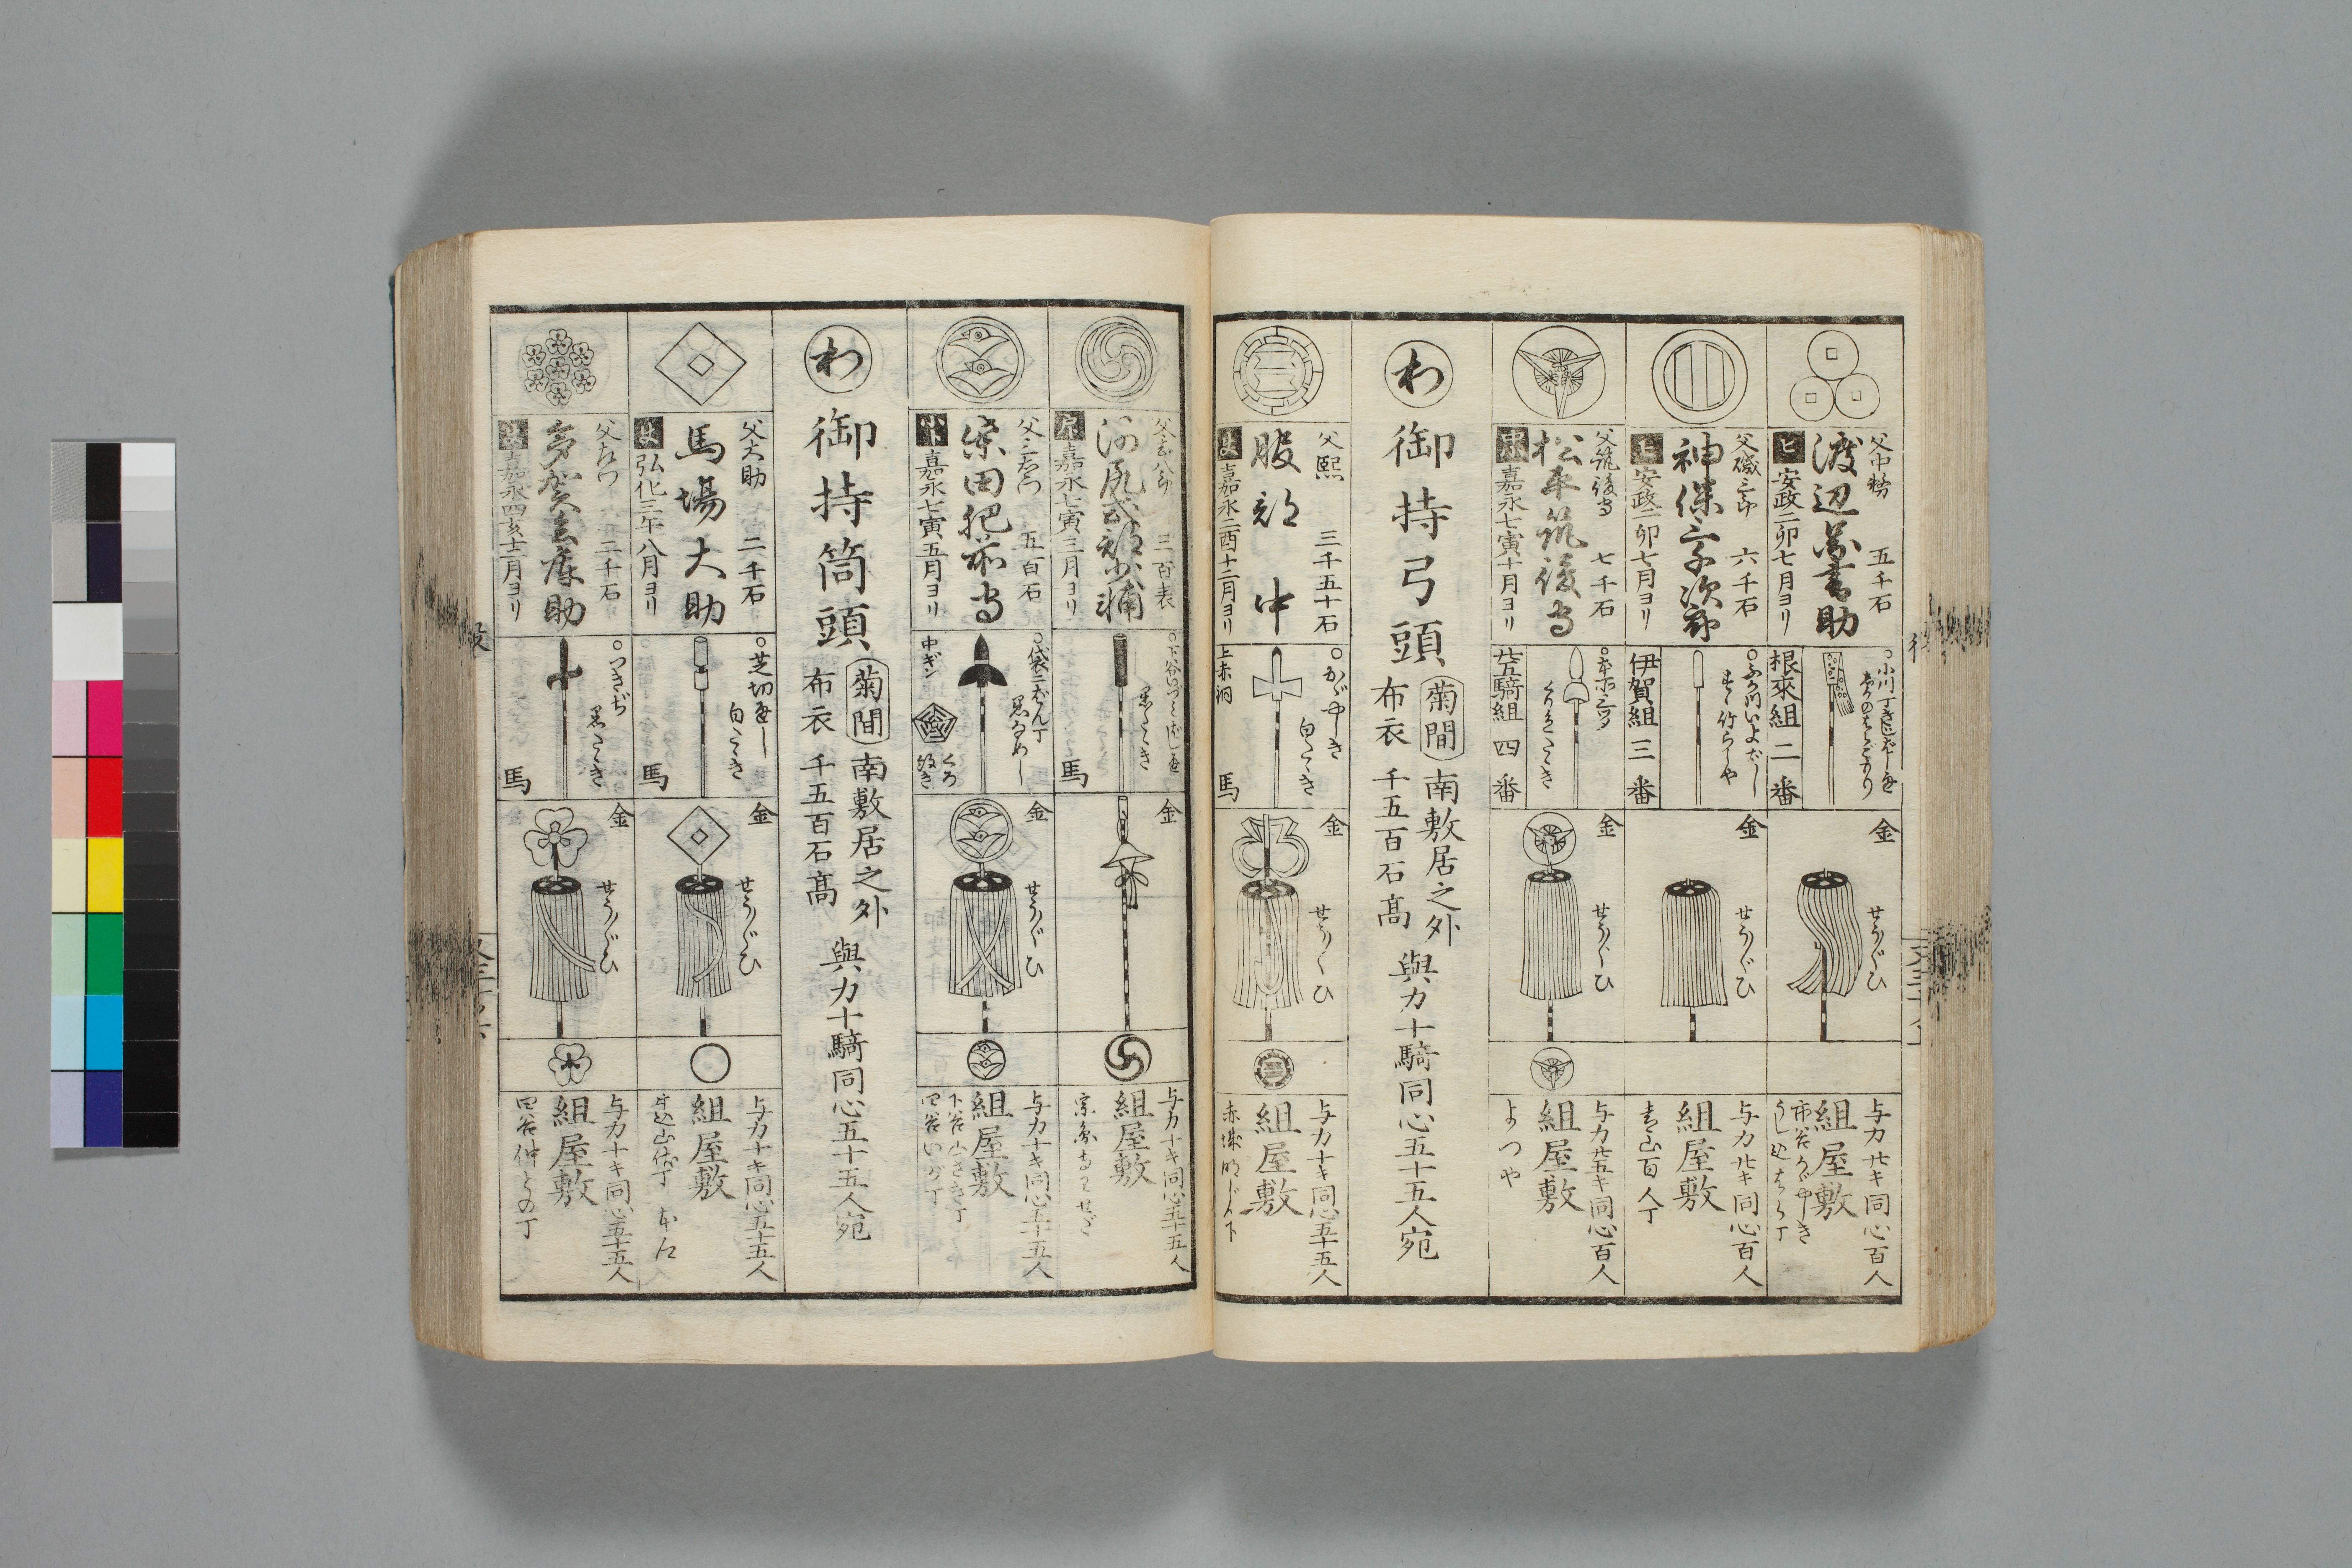 父中務 五千石
渡辺図書助
ヒ 安政二卯七月ヨリ
根来組 二番
金
せうぐひ
与力廿キ同心百人
組屋敷
父礒三郎 六千石
神保三千次郎
安政二卯七月ヨリ
伊賀組 三番
金
せうぐひ
与力廿キ同心百人
組屋敷
青山百人丁
父筑後守 七千石
松平筑後守
嘉永七寅十月ヨリ
廿五騎組 四番
金
せうぐひ
与力廿五キ同心百人
組屋敷
よつや
わ
御持弓頭
菊間 南敷居之外
布衣 千五百石高
與力十騎同心五十五人宛
父熈 三千五十石
服部中
嘉永二酉十二月ヨリ
白たゝき
上赤銅
馬
金
せうぐひ
与力十キ同心五十五人
組屋敷
赤城明ばん下
三百表
河尻式部少輔
嘉永七寅三月ヨリ
黒たゝき
馬
金
与力十キ同心五十五人
組屋敷
父三右門 五百石
柴田肥前守
嘉永七寅五月ヨリ
中ギン
金
せうぐひ
与力十キ同心五十五人
組屋敷
下谷山さき丁
四谷いが丁
わ
御持筒頭
菊間 南敷居之外
布衣 千五百石高
與力十騎同心五十五人宛
父大助 二千石
馬場大助
弘化三午八月ヨリ
○芝切通し
白たゝき
馬
金
せうぐひ
与力十キ同心五十五人
組屋敷
牛込山伏丁
父左門 二千石
多賀兵庫助
嘉永四亥十二月ヨリ
○つきぢ
黒たゝき
馬
金
せうぐひ
与力十キ同心五十五人
組屋敷
四谷仲との丁